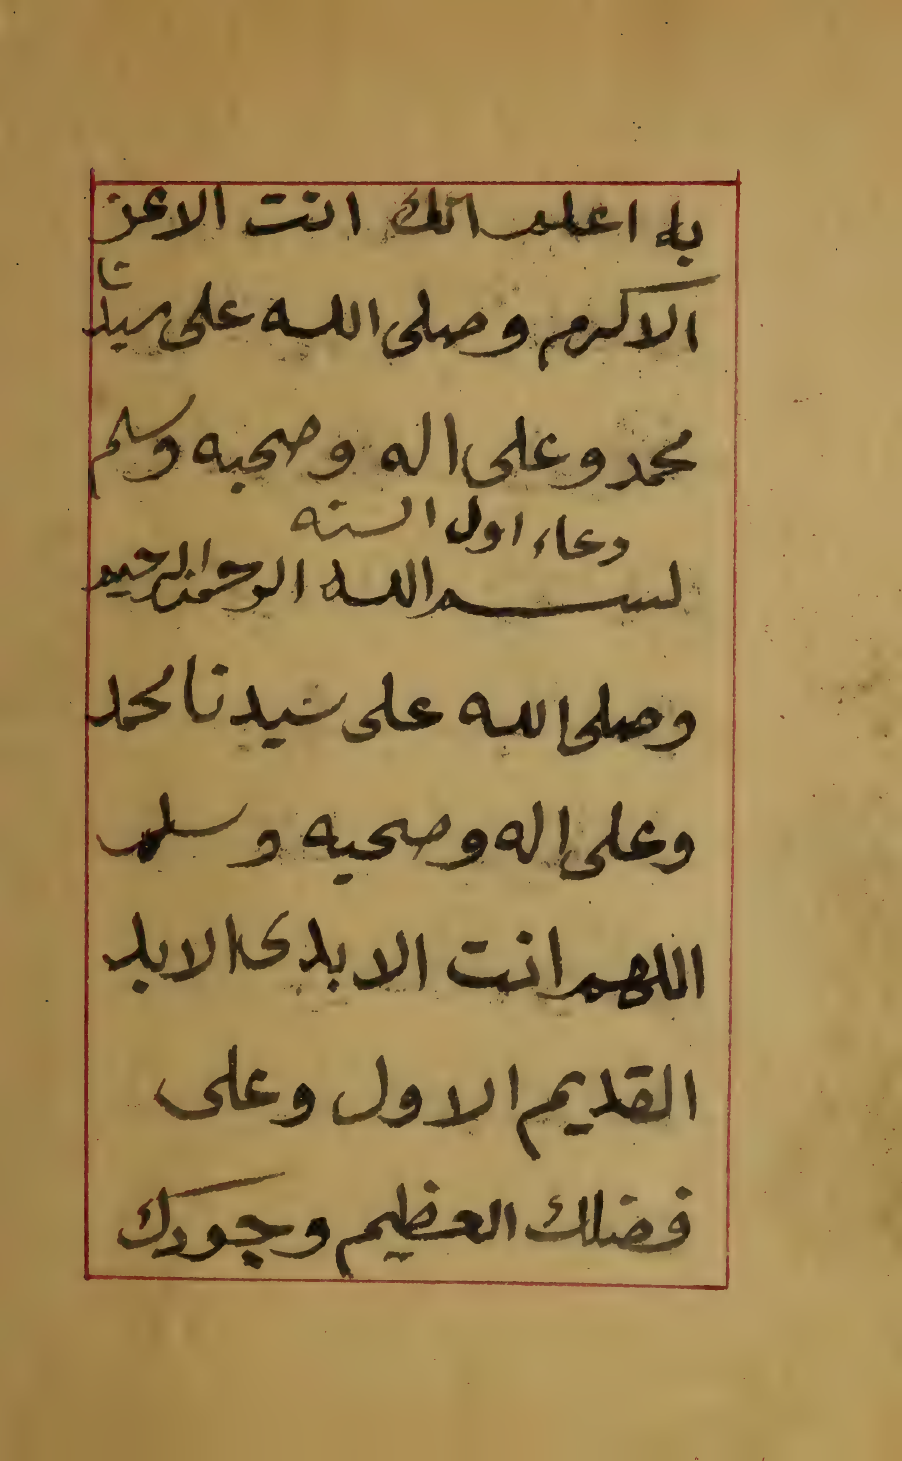 به اعلم انك انت الاعز
الاكرم وصلى الله على سيدنا
محمد وعلى اله وصحبه وسلم
دعاء اول السنه
بسم الله الرحمن الرحيم
وصلى الله على سيدنا محمد
وعلى اله وصحبه وسلم
اللهم انت الابدى الابد
القديم الاول وعلى
فضلك العظيم وجودك